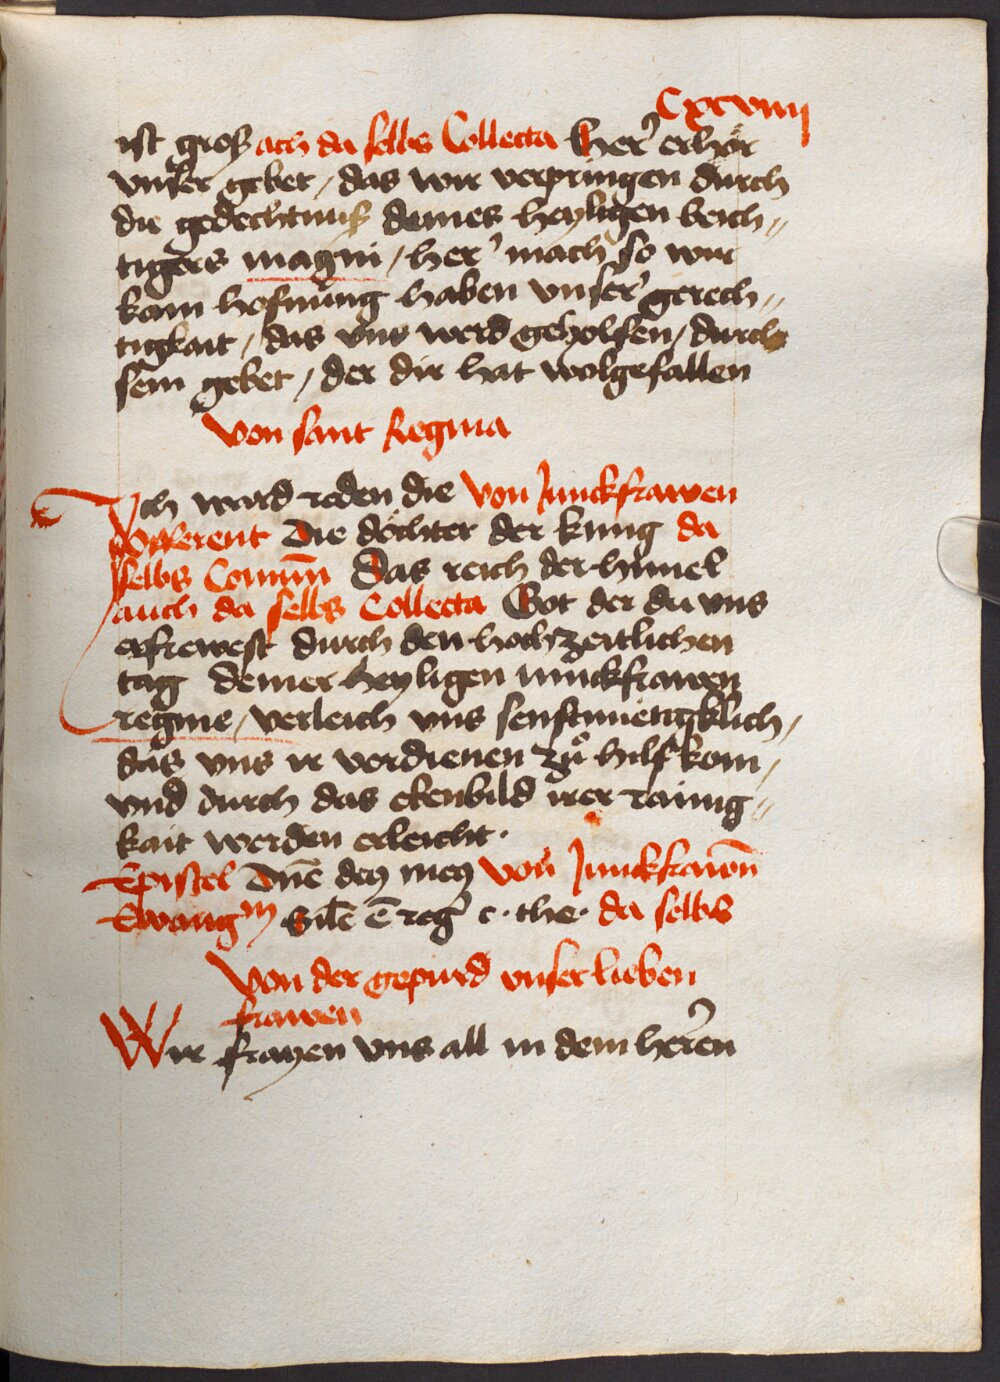 Cxcviiij
ist groß ach da selbs Collecta her' erhör
vnser gebet / das wir verpringen durch
die gedechtnuß deines heyligen beich„
tigers magni / her' mach so wir
kain hofnung haben vnser' gerech„
tigkait / das vns werd geholfen / durch
sein gebet / der dir hat wolgefallen
von sant Regina
Ich ward reden die von Junckfrawen
Offerent Die döchter der kung da
selbs Comun̄ Das reich der himel
auch da selbs Collecta Got der du vns
erfrewest durch den hochzeitlichen
tag deiner heyligen iunckfrawen
regine / verleich vns senftmietigklich /
das vns ir verdienen zů hilf kom /
vnd durch das ebenbild irer raінig„
kait werden erleicht ·
Epistel Dn̄e deꝫ meꝫ von Junckfrawen̄
Ewangm Sil̄e ē reg' c · the · da selbs
Von der gepurd vnser lieben
frawen
Wir frayen vns all in dem heren